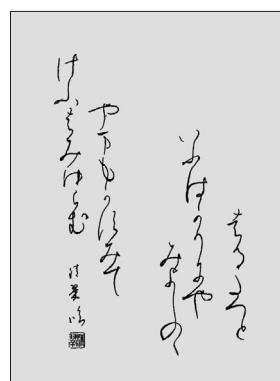 はるたつと
いふはかりにや
みよしのゝ
やまもかすみて
けふはみゆらむ